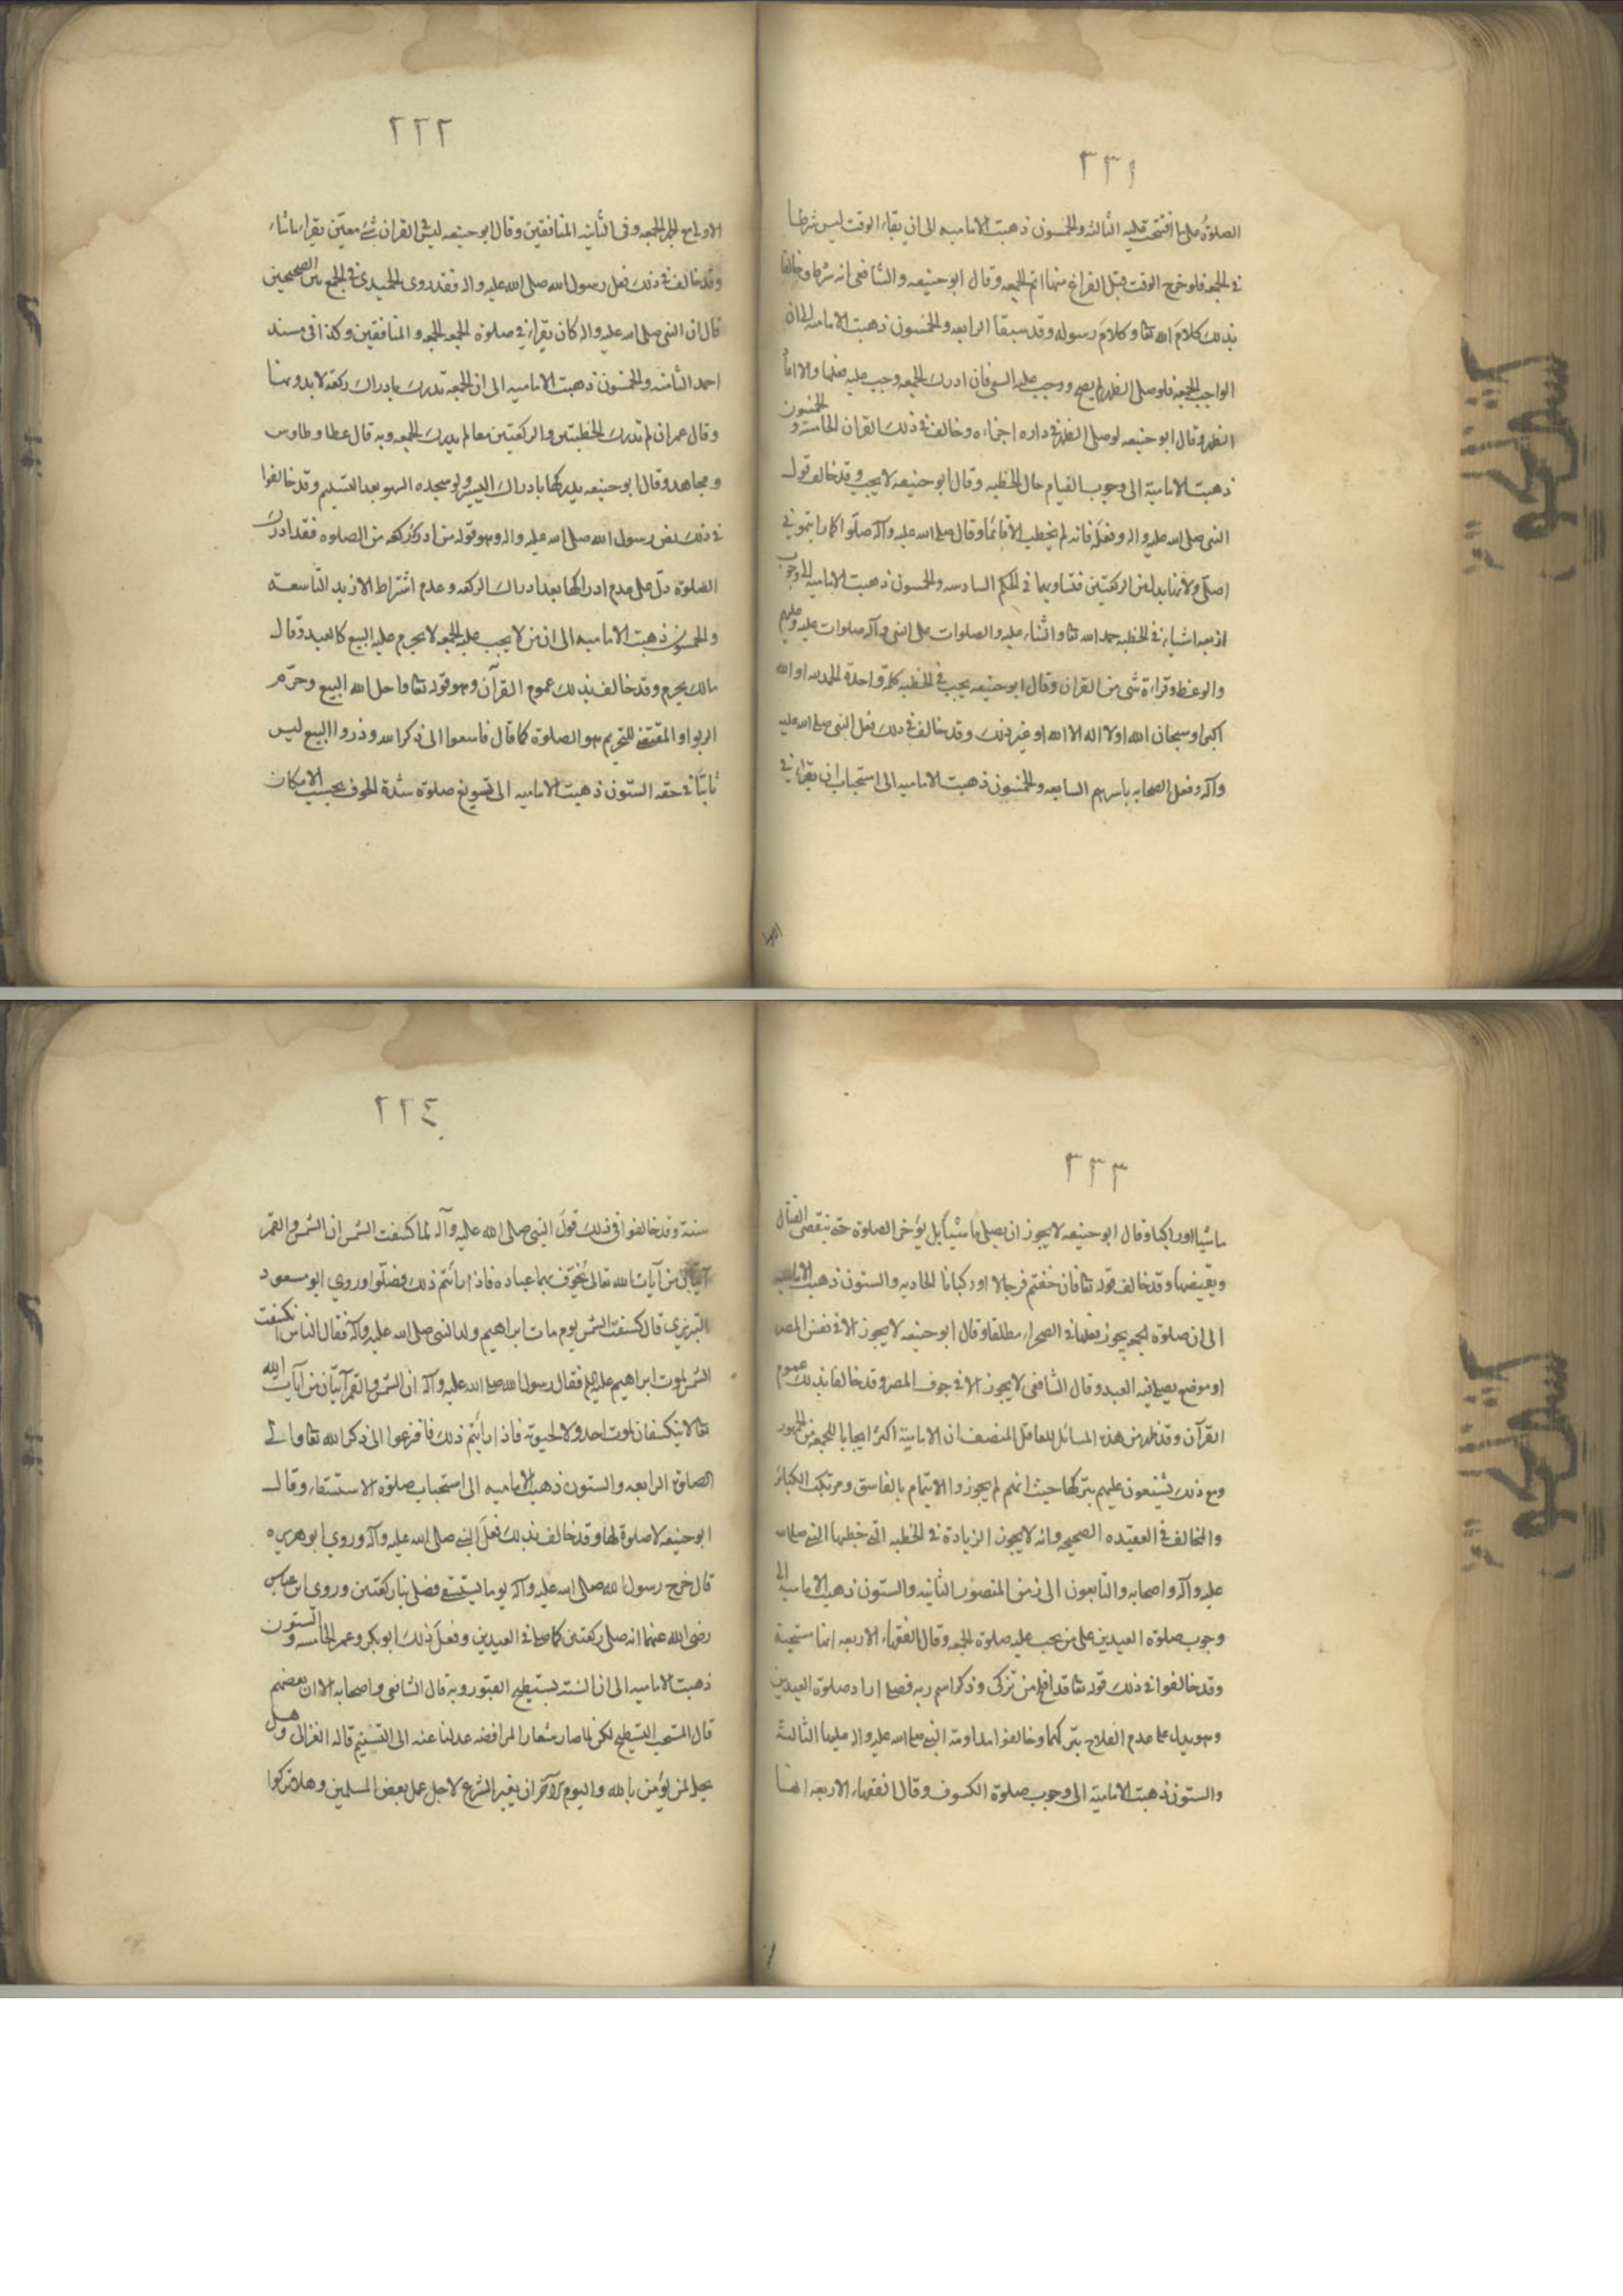 ٣٣١
الصلوة على ما افتتحت عليه الثالثه والخمسون ذهبت الاماميه الى ان بقاء الوقت ليس شرطا
في الجمعه فلو خرج الوقت قبل الفراغ منها اتم الجمعه وقال ابو حنيفه والشافعي انه شرط وخالفا
بذلك كلام الله تعا وكلام رسوله وقد سبقا الرابعه والخمسون ذهبت الاماميه الى ان
الواجب الجمعه فلو صلى الظهر لم يصح ووجب عليه السعي فان ادرك الجمعه وجب عليه فعلها والا اعاد
الظهر وقال ابو حنيفه لو صلى الظهر في داره اجزاءه وخالف في ذلك القران الخامسة والخمسون
ذهبت الامامية الى وجوب القيام حال الخطبه وقال ابو حنيفه لا يجب وقد خالف قول
النبي صلى الله عليه واله وفعله فانه لم يخطب الا قائما وقال صلى الله عليه وآله صلوا كما رايتموني
اصلي ولانها بدل من الركعتين فتساويهما في الحكم السادسه والخمسون ذهبت الاماميه الى وجوب
اربعه اشياء في الخطبه حمد الله تعا والثناء عليه والصلوات على النبي وآله صلوات عليه وعليهم
والوعظ وقراءة شى من القران وقال ابو حنيفه يجب في الخطبه كلمة واحدة الحمد لله او الله
اكبر او سبحان الله او لا اله الا الله او غير ذلك وقد خالف في ذلك فعل النبي صلى الله عليه
وآله وفعل الصحابه باسرهم السابعه والخمسون ذهبت الاماميه الى استحباب ان يقراء في
٢٢٢
الاولى مع الحمد الجمعه وفى الثانيه المنافقين وقال ابو حنيفه ليس في القران شئ معين يقراء ما شاء
وقد خالف في ذلك فعل رسول الله صلى الله عليه واله فقد روى الحميدي في الجمع بين الصحيحين
قال ان النبي صلى الله عليه واله كان يقراء في صلوة الجمعه الجمعه والمنافقين وكذا في مسند
احمد الثامنه والخمسون ذهبت الاماميه الى ان الجمعه تدرك بادراك ركعة لا بدونها
وقال عمر ان لم تدرك الخطبتين والركعتين معا لم يدرك الجمعه وبه قال عطا وطاوس
ومجاهد وقال ابو حنيفه يدركها بادراك اليسير ولو سجده السهو بعد التسليم وقد خالفوا
في ذلك نص رسول الله صلى الله عليه واله وهو قوله من ادرك ركعه من الصلوه فقد ادرك
الصلوة دل على عدم ادراكها بعد ادراك الركعه وعدم اشتراط الازيد التاسعة
والخمسون ذهبت الاماميه الى ان من لا يجب عليه الجمعه لا يحرم عليه البيع كالعبيد وقال
مالك يحرم وقد خالف بذلك عموم القرآن وهو قوله تعا واحل الله البيع وحرم
الربوا والمقتضي للتحريم هو الصلوة كما قال فاسعوا الى ذكر الله وذروا البيع ليس
ثابتا في حقه الستون ذهبت الاماميه الى تسويغ صلوة شدة الخوف بحسب الامكان
٣٣٣
ماشيا او راكبا وقال ابو حنيفه لا يجوز ان يصلي ماشيا بل يؤخر الصلوة حتى ينقضي القتال
ويقيضها وقد خالف قوله تعا فان خفتم فرجالا او ركبانا الحاديه والستون ذهبت الاماميه
الى ان صلوة الجمعه يجوز فعلها في الصحراء مطلقا وقال ابو حنيفه لا يجوز الا في نفس المصر
او موضع يصلى فيه العيد وقال الشافعي لا يجوز الا في جوف المصر وقد خالفا بذلك عموم
القرآن وقد ظهر من هذه المسائل للعاقل المنصف ان الامامية اكثر ايجابا للجمعه من الجمهور
ومع ذلك يشنعون عليهم بتركها حيث انهم لم يجوزوا الايتمام بالفاسق ومرتكب الكبائر
والمخالف في العقيده الصحيحه وانه لا يجوز الزيادة في الخطبه التي خطبها النبي صلى الله
عليه وآله واصحابه والتابعون الى زمن المنصور الثانيه والستون ذهبت الاماميه الى
وجوب صلوة العيدين على من يجب عليه صلوة الجمعه وقال الفقهاء الاربعه انها مستحبة
وقد خالفوا في ذلك قوله تعا قد افلح من تزكى وذكر اسم ربه فصلى اراد صلوة العيدين
وهو يدل على عدم الفلاح بتركهما وخالفوا مداومة النبي صلى الله عليه واله عليها الثالثة
والستون ذهبت الامامية الى وجوب صلوة الكسوف وقال الفقهاء الاربعه انها
٢٢٤
سنة وقد خالفوا في ذلك قول النبي صلى الله عليه وآله لما كسفت الشمس ان الشمس والقمر
آيتان من آيات الله تعالى يخوف بهما عباده فاذا رايتم ذلك فصلوا وروي ابو مسعود
البدري قال كسفت الشمس يوم مات ابراهيم ولد النبي صلى الله عليه وآله فقال الناس انكسفت
الشمس لموت ابراهيم عليه فقال رسول الله صلى الله عليه وآله ان الشمس والقمر آيتان من آيات الله
تعا لا ينكسفان لموت احد ولا لحيوته فاذا رأيتم ذلك فافزعوا الى ذكر الله تعا والى
الصلوة الرابعه والستون ذهبت الاماميه الى استحباب صلوة الاستسقاء وقال
ابو حنيفه لا صلوة لها وقد خالف بذلك فعل النبي صلى الله عليه وآله وروي ابو هريره
قال خرج رسول الله صلى الله عليه وآله يوما يستسقي فصلى بنا ركعتين وروى ابن عباس
رضى الله عنهما انه صلى ركعتين كما صلى في العيدين وفعل ذلك ابو بكر وعمر الخامسه والستون
ذهبت الاماميه الى ان السنه تسطيح القبور وبه قال الشافعي واصحابه الا ان بعضهم
قال المستحب التسطيح لكن لما صار شعار الرافضه عدلنا عنه الى التسنيم قاله الغزالي وهل
يحل لمن يؤمن بالله واليوم الآخر ان يغير الشرع لاجل عمل بعض المسلمين وهلا تركوا